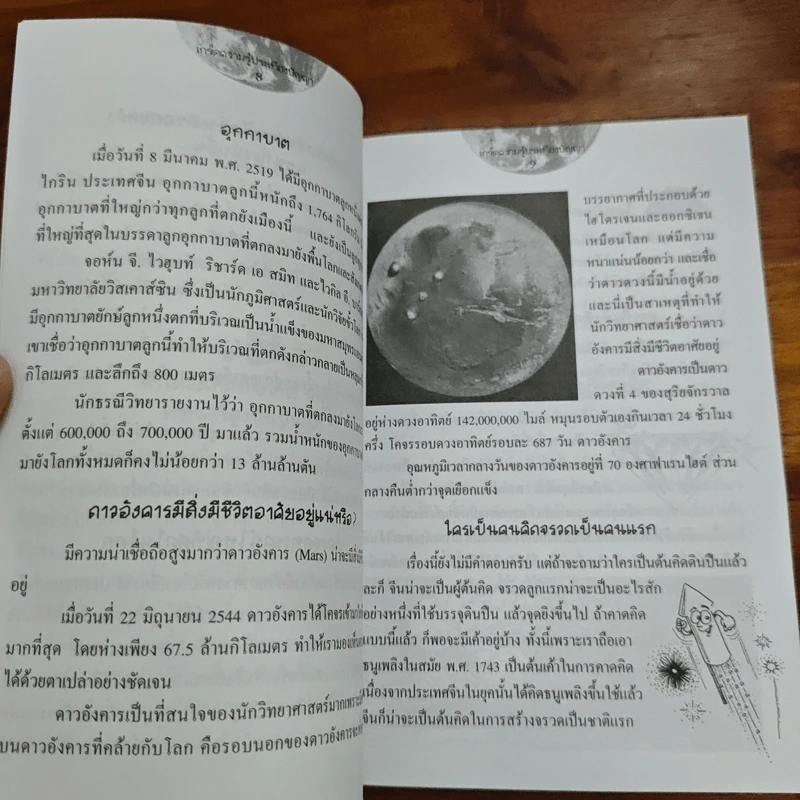 เกร็ดความรู้ประเทืองปัญญา
8
อุกกาบาต
เมื่อวันที่ 8 มีนาคม พ.ศ. 2519 ได้มีอุกกาบาตลูกหนึ่ง
ไกริน ประเทศจีน อุกกาบาตลูกนี้หนักถึง 1,764 กิโลกรัม
อุกกาบาตที่ใหญ่กว่าทุกลูกที่ตกยังเมืองนี้ และยังเป็น
ที่ใหญ่ที่สุดในบรรดาลูกอุกกาบาตที่ตกลงมายังพื้นโลกและ
จอห์น จี. ไวฮุบท์ ริชาร์ด เอ สมิท และไวกิล อี.
มหาวิทยาลัยวิสเคาส์ซิน ซึ่งเป็นนักภูมิศาสตร์และนักวิจัย
มีอุกกาบาตยักษ์ลูกหนึ่งตกที่บริเวณเป็นน้ำแข็งของมหาสมุทร
เขาเชื่อว่าอุกกาบาตลูกนี้ทำให้บริเวณที่ตกดังกล่าวกลายเป็น
กิโลเมตร และลึกถึง 800 เมตร
นักธรณีวิทยารายงานไว้ว่า อุกกาบาตที่ตกลงมายังโลก
ตั้งแต่ 600,000 ถึง 700,000 ปี มาแล้ว รวมน้ำหนักของ
มายังโลกทั้งหมดก็คงไม่น้อยกว่า 13 ล้านล้านตัน
ดาวอังคารมีสิ่งมีชีวิตอาศัยอยู่แน่หรือ
มีความน่าเชื่อถือสูงมากว่าดาวอังคาร (Mars) น่าจะมี
อยู่
เมื่อวันที่ 22 มิถุนายน 2544 ดาวอังคารได้โคจรเข้ามา
มากที่สุด โดยห่างเพียง 67.5 ล้านกิโลเมตร ทำให้เรามองเห็น
ได้ด้วยตาเปล่าอย่างชัดเจน
ดาวอังคารเป็นที่สนใจของนักวิทยาศาสตร์มากเพราะ
บนดาวอังคารที่คล้ายกับโลก คือรอบนอกของดาวอังคาร
เกร็ดความรู้ประเทืองปัญญา
9
บรรยากาศที่ประกอบด้วย
ไฮโดรเจนและออกซิเจน
เหมือนโลก แต่มีความ
หนาแน่นน้อยกว่า และเชื่อ
ว่าดาวดวงนี้มีน้ำอยู่ด้วย
และนี่เป็นสาเหตุที่ทำให้
นักวิทยาศาสตร์เชื่อว่าดาว
อังคารมีสิ่งมีชีวิตอาศัยอยู่
ดาวอังคารเป็นดาว
ดวงที่ 4 ของสุริยจักรวาล
อยู่ห่างดวงอาทิตย์ 142,000,000 ไมล์ หมุนรอบตัวเองกินเวลา 24 ชั่วโมง
ครึ่ง โคจรรอบดวงอาทิตย์รอบละ 687 วัน ดาวอังคาร
อุณหภูมิเวลากลางวันของดาวอังคารอยู่ที่ 70 องศาฟาเรนไฮต์ ส่วน
กลางคืนต่ำกว่าจุดเยือกแข็ง
ใครเป็นคนคิดจรวดเป็นคนแรก
เรื่องนี้ยังไม่มีคำตอบครับ แต่ถ้าจะถามว่าใครเป็นต้นคิดดินปืนแล้ว
ละก็ จีนน่าจะเป็นผู้ต้นคิด จรวดลูกแรกน่าจะเป็นอะไรสัก
อย่างหนึ่งที่ใช้บรรจุดินปืน แล้วจุดยิงขึ้นไป ถ้าคาดคิด
แบบนี้แล้ว ก็พอจะมีเค้าอยู่บ้าง ทั้งนี้เพราะเราถือเอา
ธนูเพลิงในสมัย พ.ศ. 1743 เป็นต้นเค้าในการคาดคิด
เนื่องจากประเทศจีนในยุคนั้นได้คิดธนูเพลิงขึ้นใช้แล้ว
จีนก็น่าจะเป็นต้นคิดในการสร้างจรวดเป็นชาติแรก